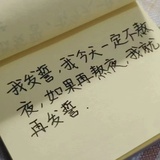 我发誓,我今天一定不熬
夜,如果再熬夜,我就
再发誓.